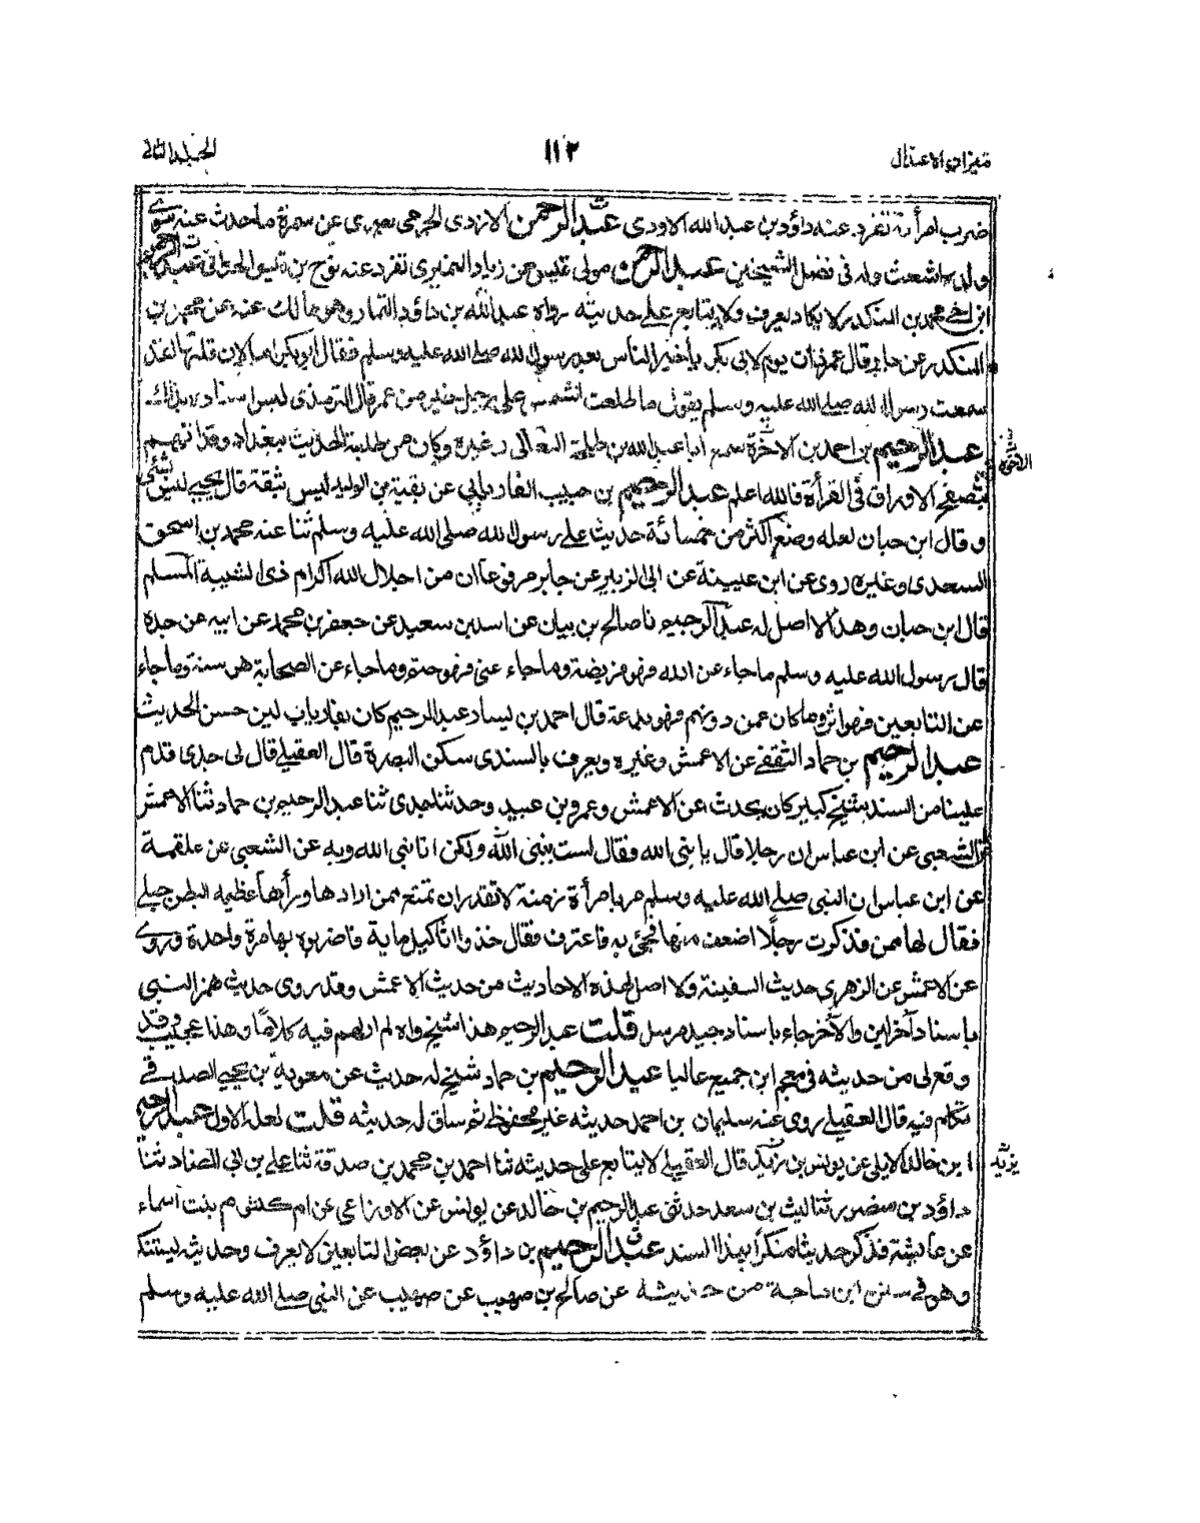 ميزان الاعتدال ١١٢ الجلد الثانى
ضرب امرأته تفرد عنه داؤد بن عبد الله الاودى عبد الرحمن الازدى الجرمى بصرى عن سمرة ما حدث عنه سوى
ولده اشعث وله فى فضل الشيخين عبد الرحمن مولى قيس عن زياد النميرى تفرد عنه نوح بن قيس الحدانى عبد الرحمن
ابن اخى محمد بن المنكدر لا يكاد يعرف ولا يتابع على حديثه رواه عبد الله بن داؤد التمار وهو هالك عنه عن محمد بن
المنكدر عن جابر قال عمر ذات يوم لابى بكر يا خير الناس بعد رسول الله صلى الله عليه وسلم فقال ابو بكر اما لان قلتها لقد
سمعت رسول الله صلى الله عليه وسلم يقول ما طلعت الشمس على رجل خير من عمر قال الترمذى ليس اسناده بذاك
عبد الرحيم بن احمد بن الاخوة سمع ابا عبد الله بن طلحة النعالى وغيره وكان من طلبة الحديث ببغداد وقد اتهم
الاخوة
بتصفح الاوراق فى القرأة فالله اعلم عبد الرحيم بن حبيب الفاريابى عن بقية بن الوليد ليس بثقة قال يحيى ليس بشئ
وقال ابن حبان لعله وضع اكثر من خمسمائة حديث على رسول الله صلى الله عليه وسلم ثنا عنه محمد بن اسحق
السعدى وغيره روى عن ابن عيينة عن ابى الزبير عن جابر مرفوعا ان من اجلال الله اكرام ذى الشيبة المسلم
قال ابن حبان وهذا لا اصل له عبد الرحيم نا صالح بن بيان عن اسد بن سعيد عن جعفر بن محمد عن ابيه عن جده
قال رسول الله عليه وسلم ما جاء عن الله فهو فريضة وما جاء عنى فهو حتم وما جاء عن الصحابة هو سنة وما جاء
عن التابعين فهو اثر وما كان عمن دونهم فهو بدعة قال احمد بن يسار عبد الرحيم كان بفارياب لين حسن الحديث
عبد الرحيم بن حماد الثقفى عن الاعمش وغيره ويعرف بالسندى سكن البصرة قال العقيلى قال لى جدى قدم
علينا من السند شيخ كبير كان يحدث عن الاعمش وعمرو بن عبيد وحدثنا جدى ثنا عبد الرحيم بن حماد ثنا الاعمش
عن الشعبى عن ابن عباس ان رجلا قال يا نبئ الله وفقال لست بنبئ الله ولكن انا نبى الله وبه عن الشعبى عن علقمة
عن ابن عباس ان النبى صلى الله عليه وسلم مر بامرأة زمنة لا تقدر ان تمتنع ممن ارادها ورأها عظيمة البطن حبلى
فقال لها ممن فذكرت رجلًا اضعف منها فجئ به فاعترف فقال خذوا اثاكيل ماية فاضربوه بها مرة واحدة وروى
عن الاعمش عن الزهرى حديث السفينة ولا اصل لهذه الاحاديث من حديث الاعمش وقد روى حديث همز النبى
باسناد آخر لين والآخر جاء باسناد جيد مرسل قلت عبد الرحيم هذا شيخ واه لم ار لهم فيه كلامًا وهذا عجيب وقد
وقع لى من حديثه فى معجم ابن جميع عاليا عبد الرحيم بن حماد شيخ له حديث عن معوية بن يحيى الصدفى
تكلم فيه قال العقيلى روى عنه سليمان بن احمد حديثه غير محفوظ ثم ساق له حديثه قلت لعله الاول عبد الرحيم
ابن خالد الايلى عن يونس بن يزيد قال العقيلى لا يتابع على حديثه ثنا احمد بن محمد بن صدقة ثنا على بن ابى المضاد ثنا
يزيد
داؤد بن منصور ثنا ليث بن سعد حدثنى عبد الرحيم بن خالد عن يونس عن الاوزاعى عن ام كلثوم بنت اسماء
عن عايشة فذكر حديثا منكرا بهذا السند عبد الرحيم بن داؤد عن بعض التابعين لا يعرف وحديثه يستنكر
وهو فى سنن ابن ماجة من حديثه عن صالح بن صهيب عن صهيب عن النبى صلى الله عليه وسلم